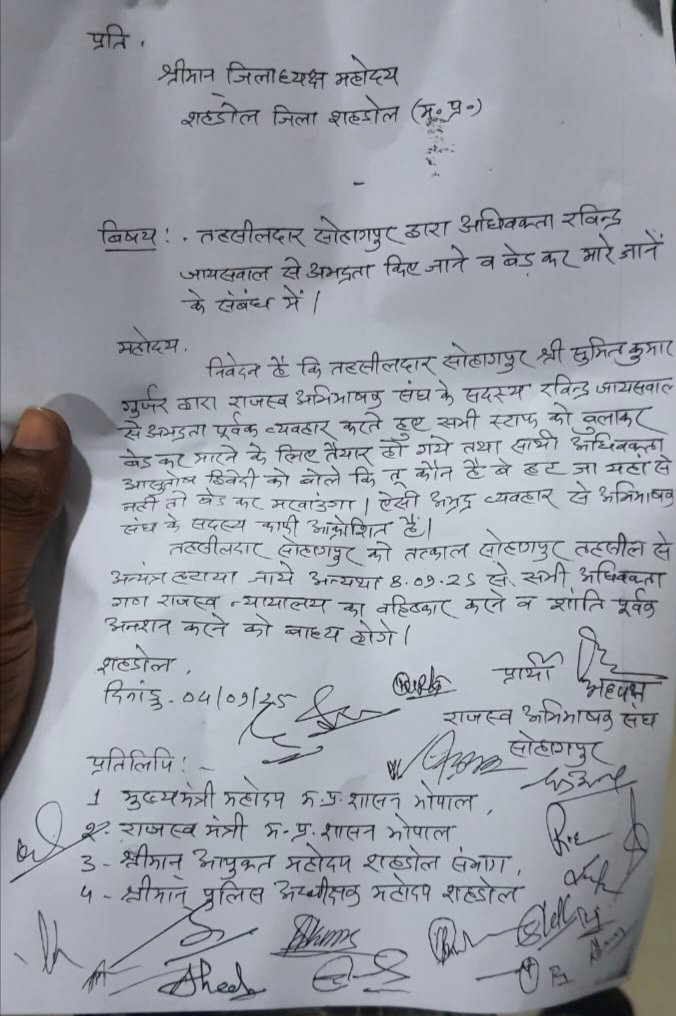 प्रति,
श्रीमान् जिलाध्यक्ष महोदय
शहडोल जिला शहडोल (म.प्र.)
विषय :- तहसीलदार सोहागपुर द्वारा अधिवक्ता रविन्द्र
जायसवाल से अभद्रता किए जाने व बेड़ कर मारे जानें
के संबंध में।
महोदय,
निवेदन है कि तहसीलदार सोहागपुर श्री सुमित कुमार
गुर्जर द्वारा राजस्व अभिभाषक संघ के सदस्य रविन्द्र जायसवाल
से अभद्रता पूर्वक व्यवहार करते हुए सभी स्टाफ को बुलाकर
बेड़ कर मारने के लिए तैयार हो गये तथा साथी अधिवक्ता
आशुतोष द्विवेदी को बोले कि तू कौन है बे हट जा यहां से
नहीं तो बेड़ कर मरवाउंगा। ऐसी अभद्र व्यवहार से अभिभाषक
संघ के सदस्य काफी आक्रोशित हैं।
तहसीलदार सोहागपुर को तत्काल सोहागपुर तहसील से
अन्यत्र हटाया जाये अन्यथा 8.09.25 से सभी अधिवक्ता
गण राजस्व न्यायालय का वहिष्कार करने व शांति पूर्वक
अनशन करने को बाध्य होगे।
शहडोल,
दिनांक - 04/09/25
प्रार्थी
अध्यक्ष
राजस्व अभिभाषक संघ
सोहागपुर
प्रतिलिपि :-
1 मुख्यमंत्री महोदय म.प्र. शासन भोपाल,
2. राजस्व मंत्री म.प्र. शासन भोपाल
3 - श्रीमान् आयुक्त महोदय शहडोल संभाग,
4 - श्रीमान् पुलिस अधीक्षक महोदय शहडोल